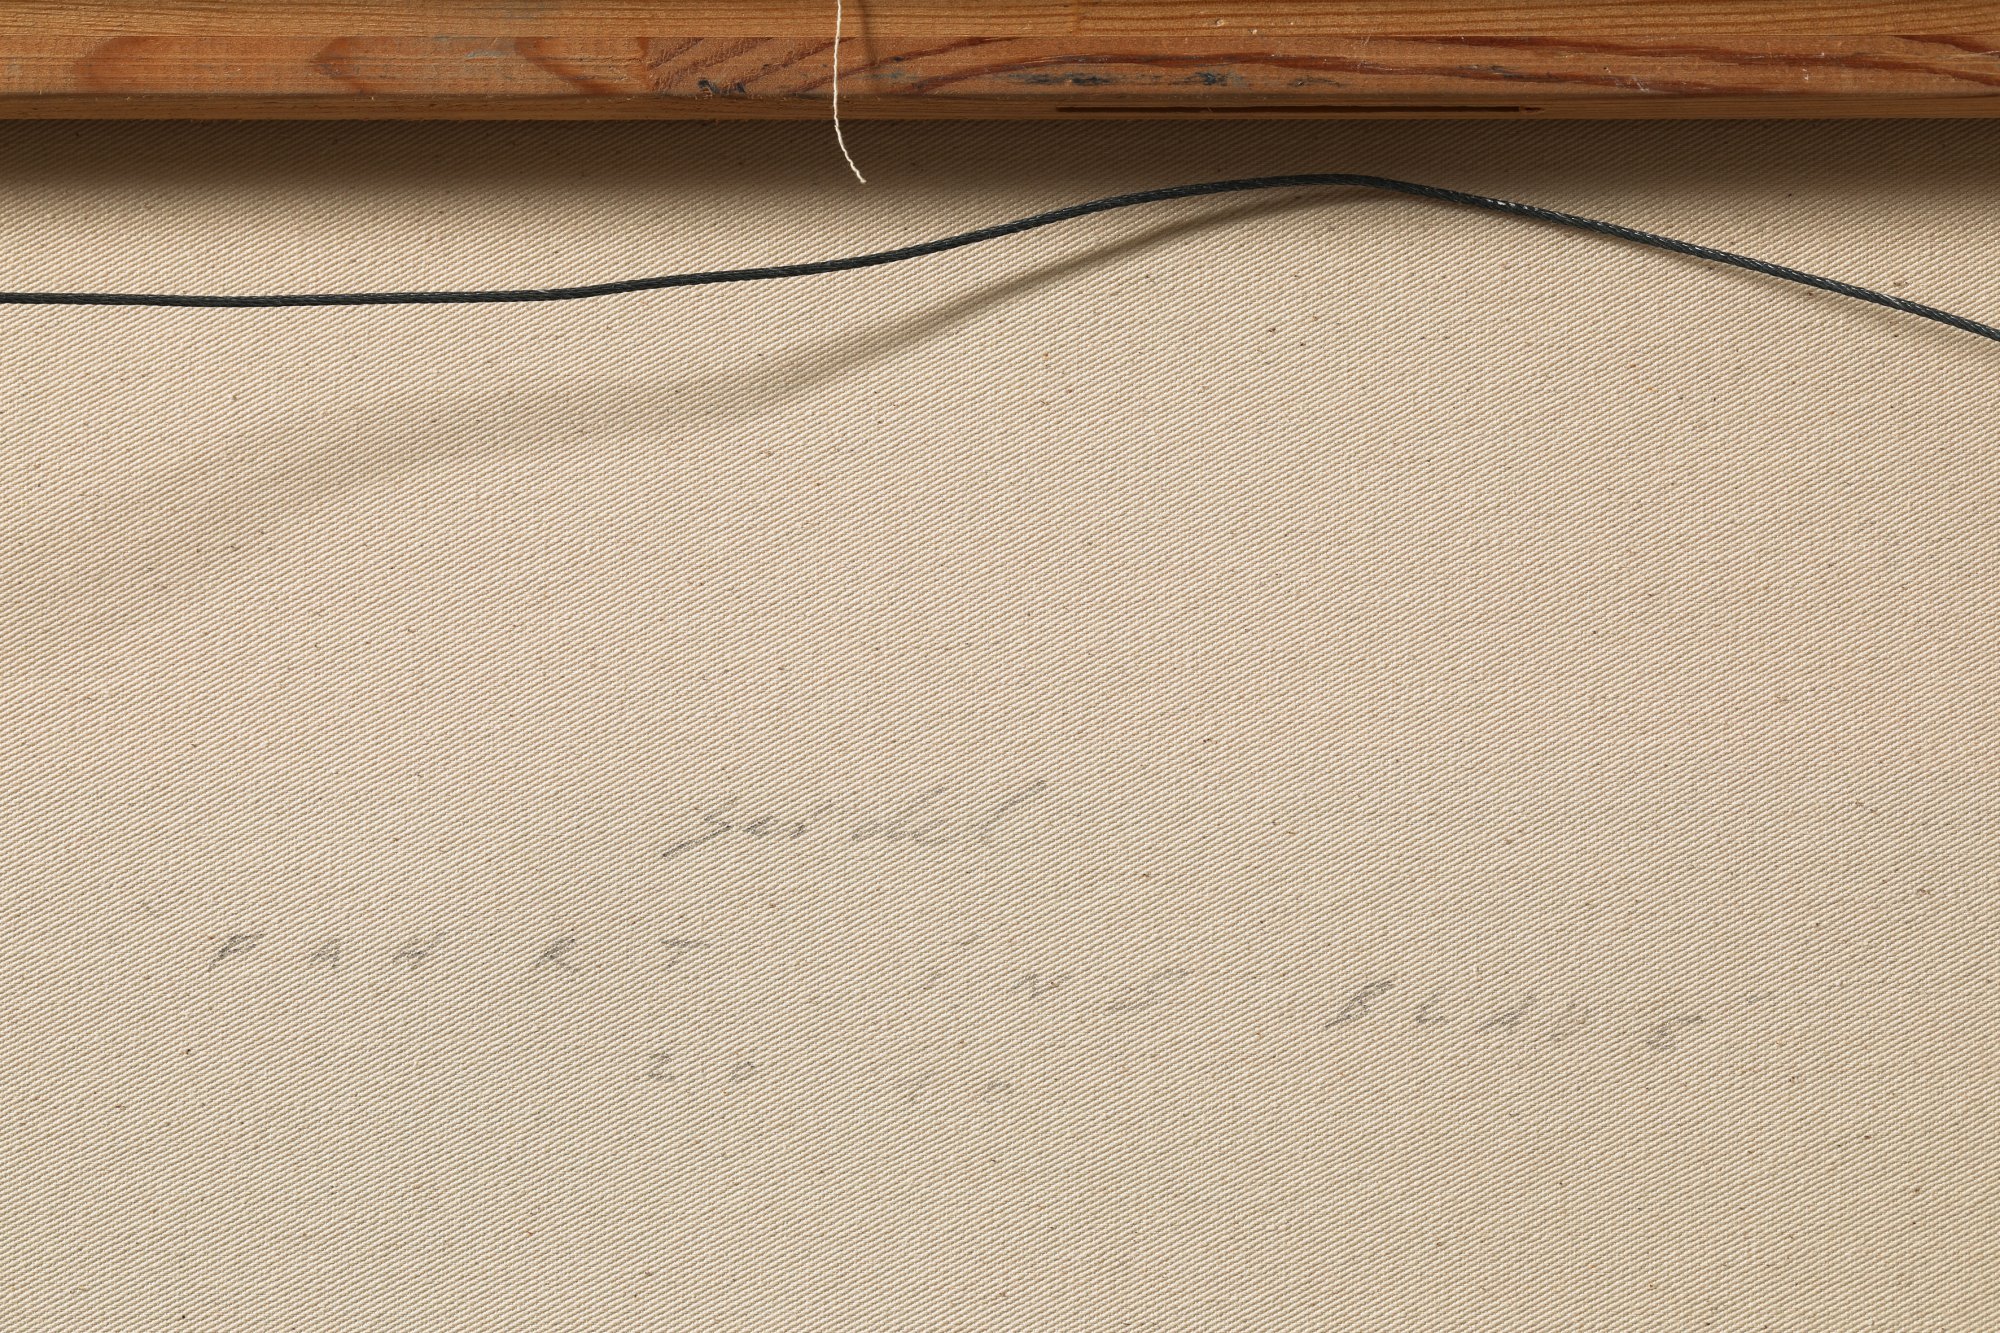 Seidel
FAHRT INS BLAUE
2010